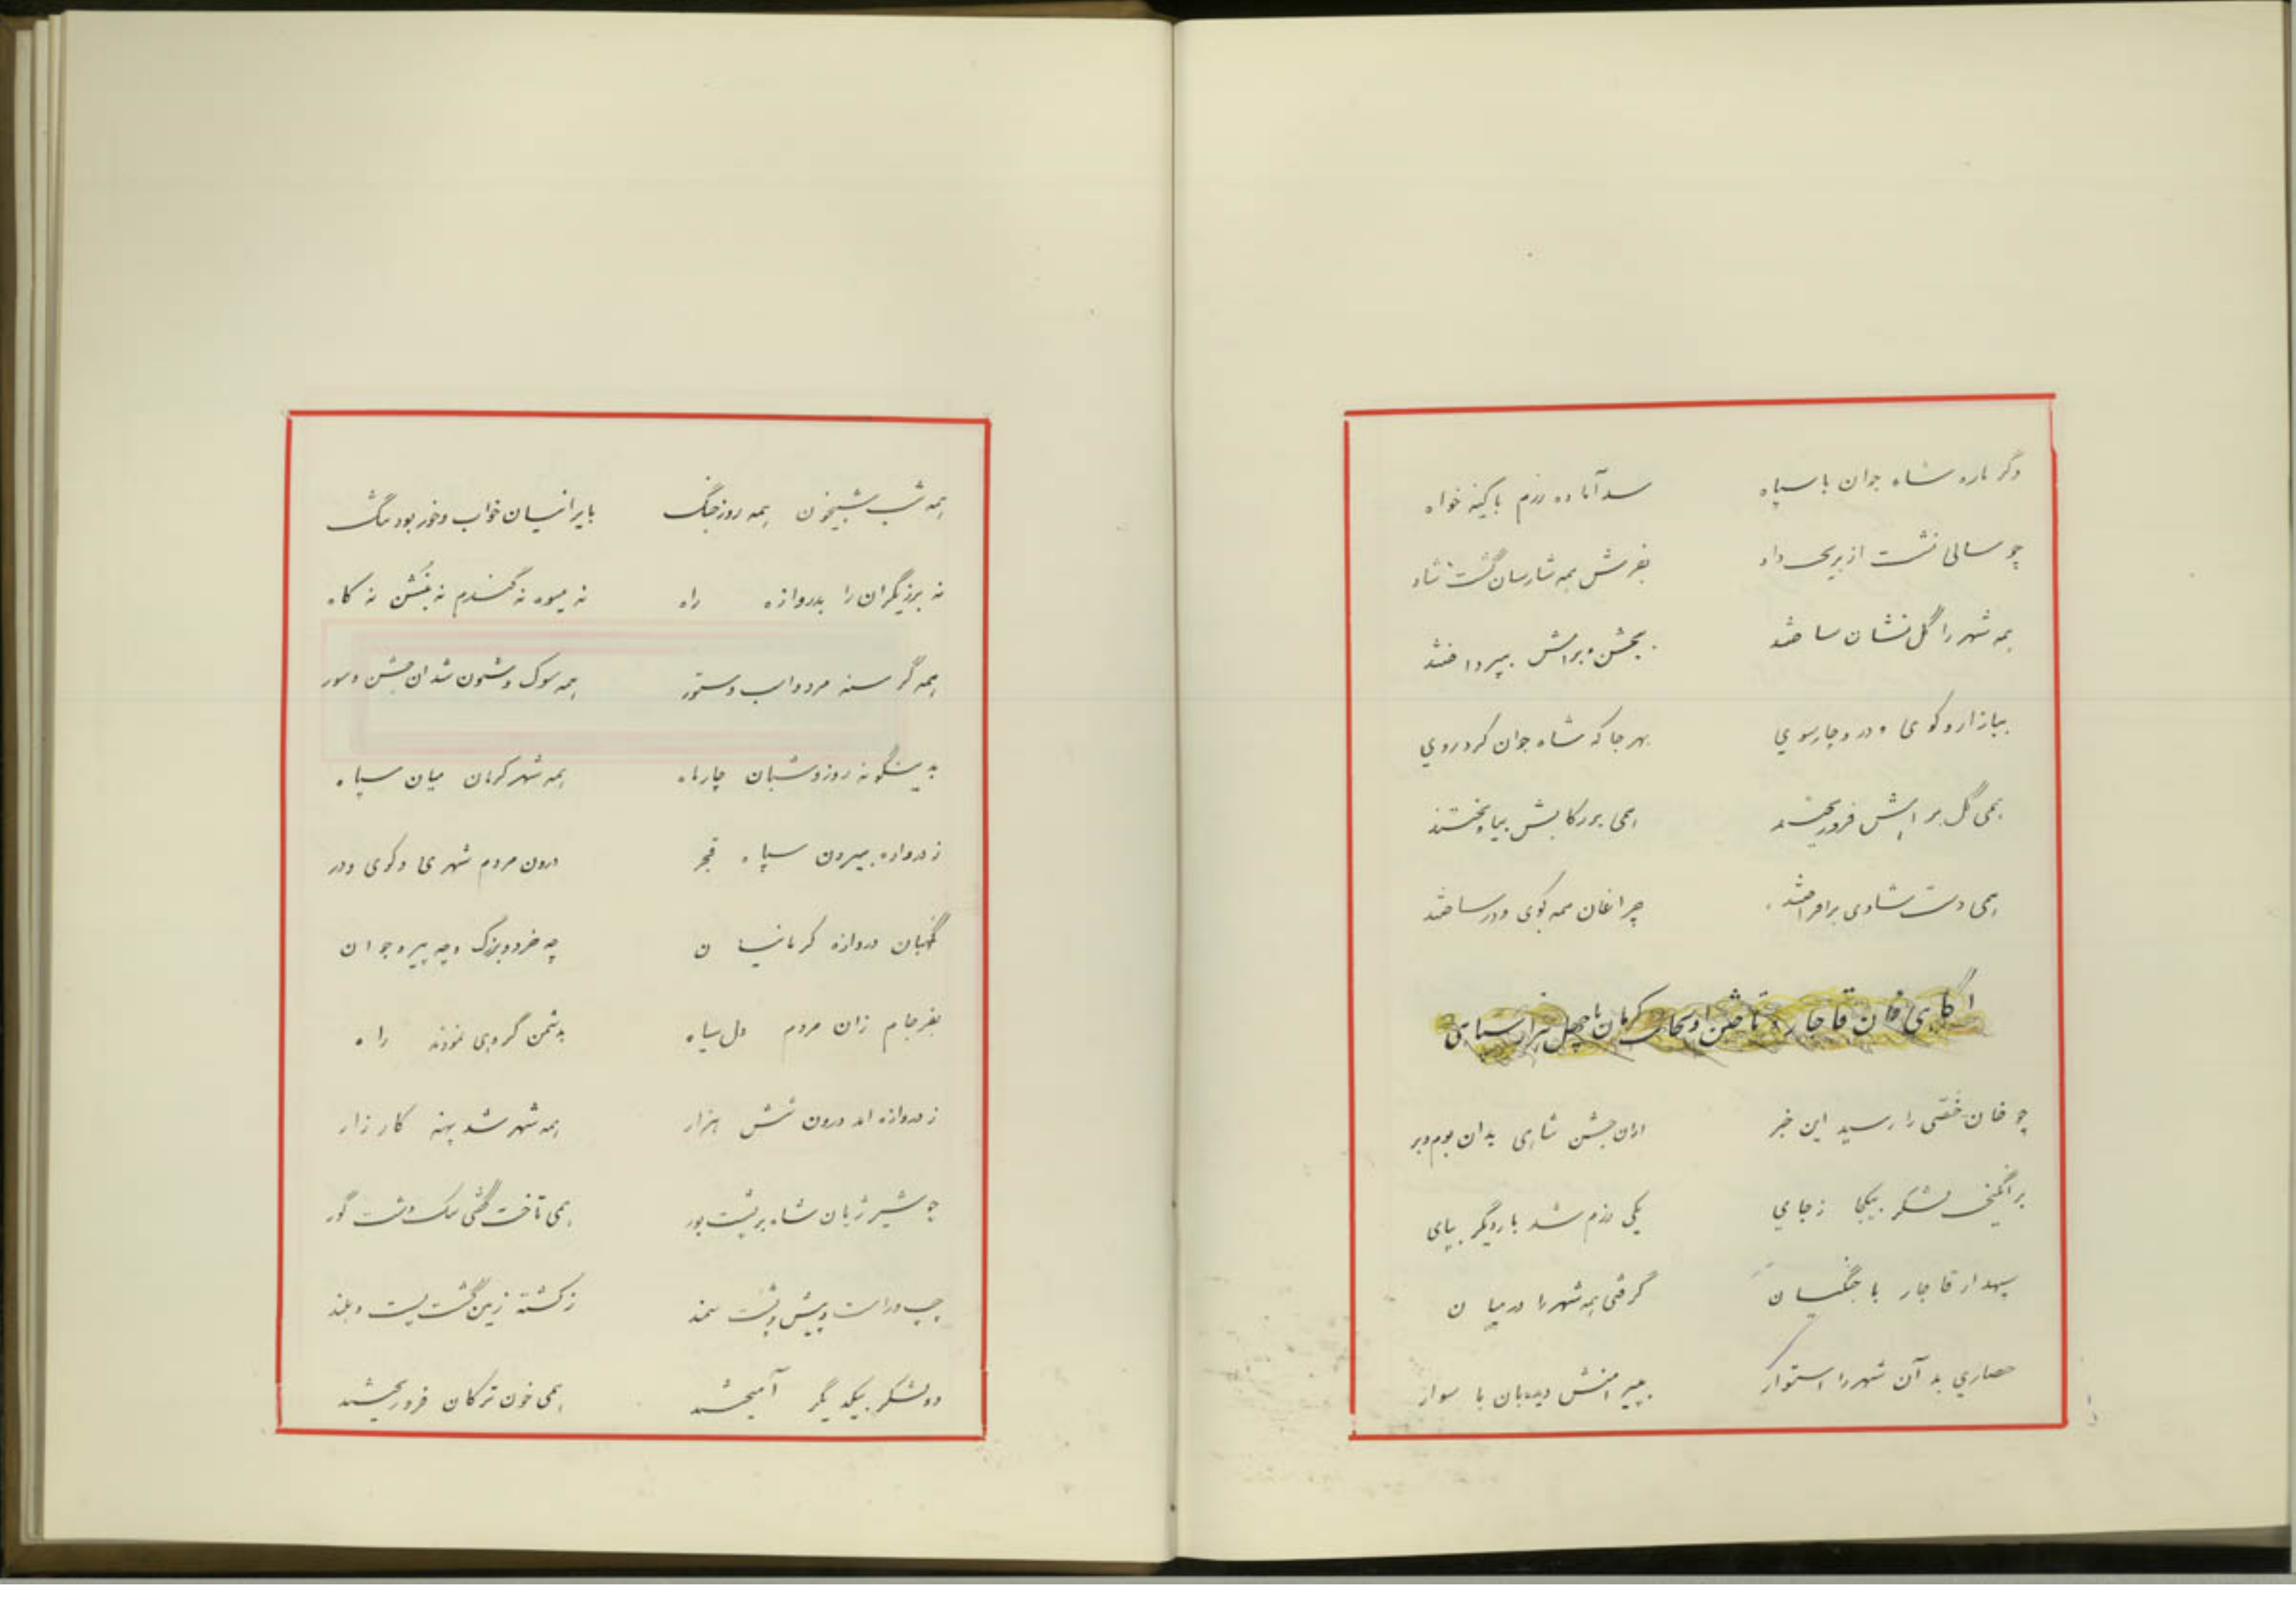 دگر باره شاه جوان با سپاه    سد آماده رزم با کینه خواه
چو سالی نشست از بر داد    بفرش همه شارسان گشت شاد
همه شهر را گل نشان ساختند    بجشن و برامش بپرداختند
ببازار و کوی و در و چارسوی    بهر جا که شاه جوان کرد روی
همی گل بر اسپش فرو ریختند    همی بر رکابش بیاویختند
همی دست شادی برافراختند    چراغان همه کوی و در ساختند
اگاهی خان قاجار و تاختن او بکرمان با چهل هزار سپاهی
چو خان خصی را رسید این خبر    ازان جشن شاهی بدان بوم و بر
برانگیخت لشکر بیکجا زجای    یکی رزم شد بار دیگر بپای
سپهدار قاجار با جنگیان    گرفتی همه شهر را در میان
حصاری بد آن شهر را استوار    بپیرامنش دیدبان با سوار
همه شب شبیخون همه روز جنگ    بایرانیان خواب و خور بود تنگ
نه برزیگران را بدروازه راه    نه میوه نه گندم نه بنشن نه کاه
همه گرسنه مردو اسب و ستور    همه سوک و شیون شد ان جشن و سور
بدینگونه روز و شبان چار ماه    همه شهر کرمان میان سپاه
ز دروازه بیرون سپاه قجر    درون مردم شهری و کوی و در
نگهبان دروازه کرمانیان    چه خرد و بزرگ و چه پیر و جوان
بفرجام زان مردم دل سیاه    بدشمن گروهی نمودند راه
ز دروازه امد درون شش هزار    همه شهر شد پهنه کارزار
چو شیر ژیان شاه بر پشت بور    همی تاخت گفتی یک دشت گور
چپ و راست و پیش و پشت سمند    ز کشته زمین گشت پست و بلند
دو لشکر بیکدیگر آمیختند    همی خون ترکان فرو ریختند